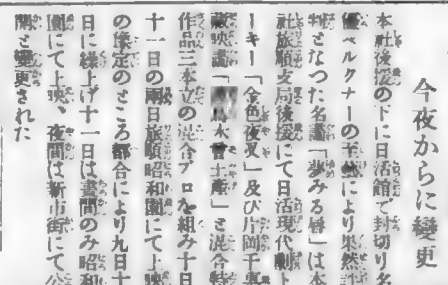 今夜からに變更
本社後援の下に日活館で封切り名
優ベルクナーの至藝により果然評
判となつた名畵「夢みる唇」は本
社旅順支局後援にて日活現代劇ト
ーキー「金色夜叉」及び片岡千惠
藏映畵「木曾土産」と混合特
作品三本立の混合プロを組み十日
十一日の兩日旅順昭和園にて上映
の豫定のところ都合により九日十
日に繰上げ十一日は晝間のみ昭和
園にて上映、夜間は新市街にて公
開と變更された